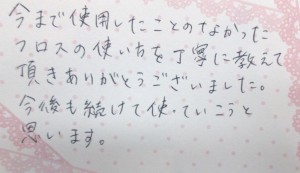 今まで使用したことのなかった
フロスの使い方を丁寧に教えて
頂きありがとうございました。
今後も続けて使っていこうと
思います。